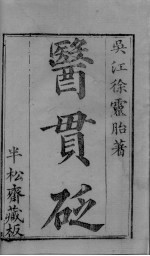 吳江徐靈胎著
醫貫砭
半松齋藏板